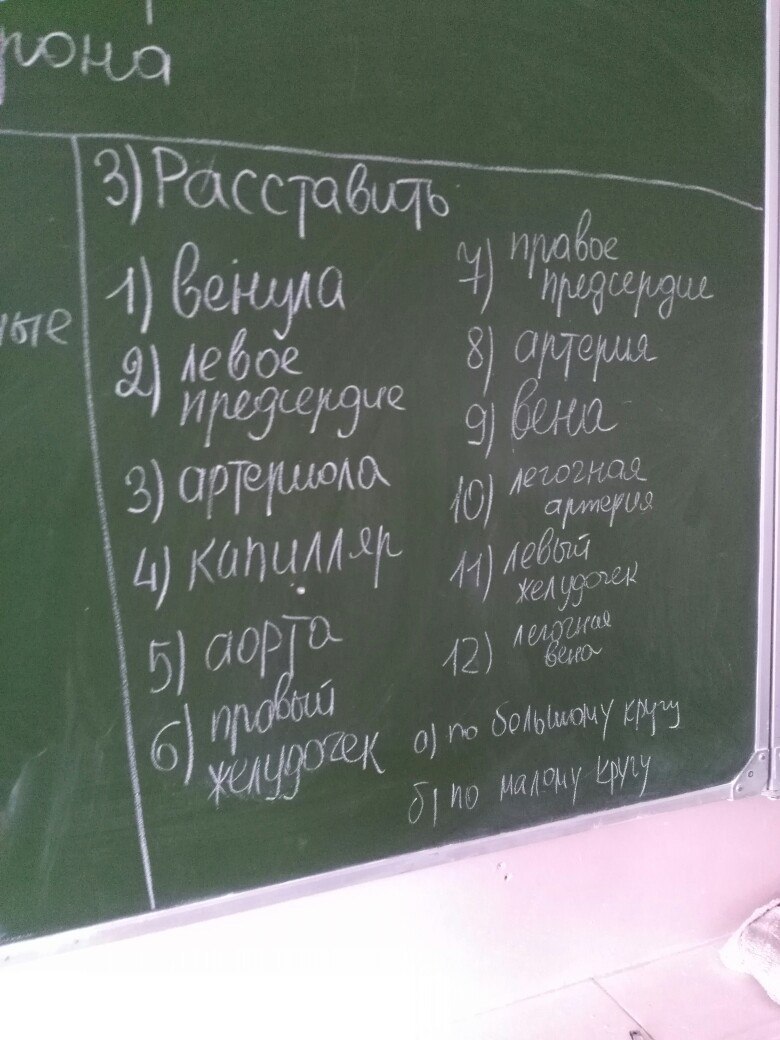 3) Расставить
1) венула
2) левое
предсердие
3) артериола
4) капилляр
5) аорта
6) правый
желудочек
7) правое
предсердие
8) артерия
9) вена
10) легочная
артерия
11) левый
желудочек
12) легочная
вена
а) по большому кругу
б) по малому кругу